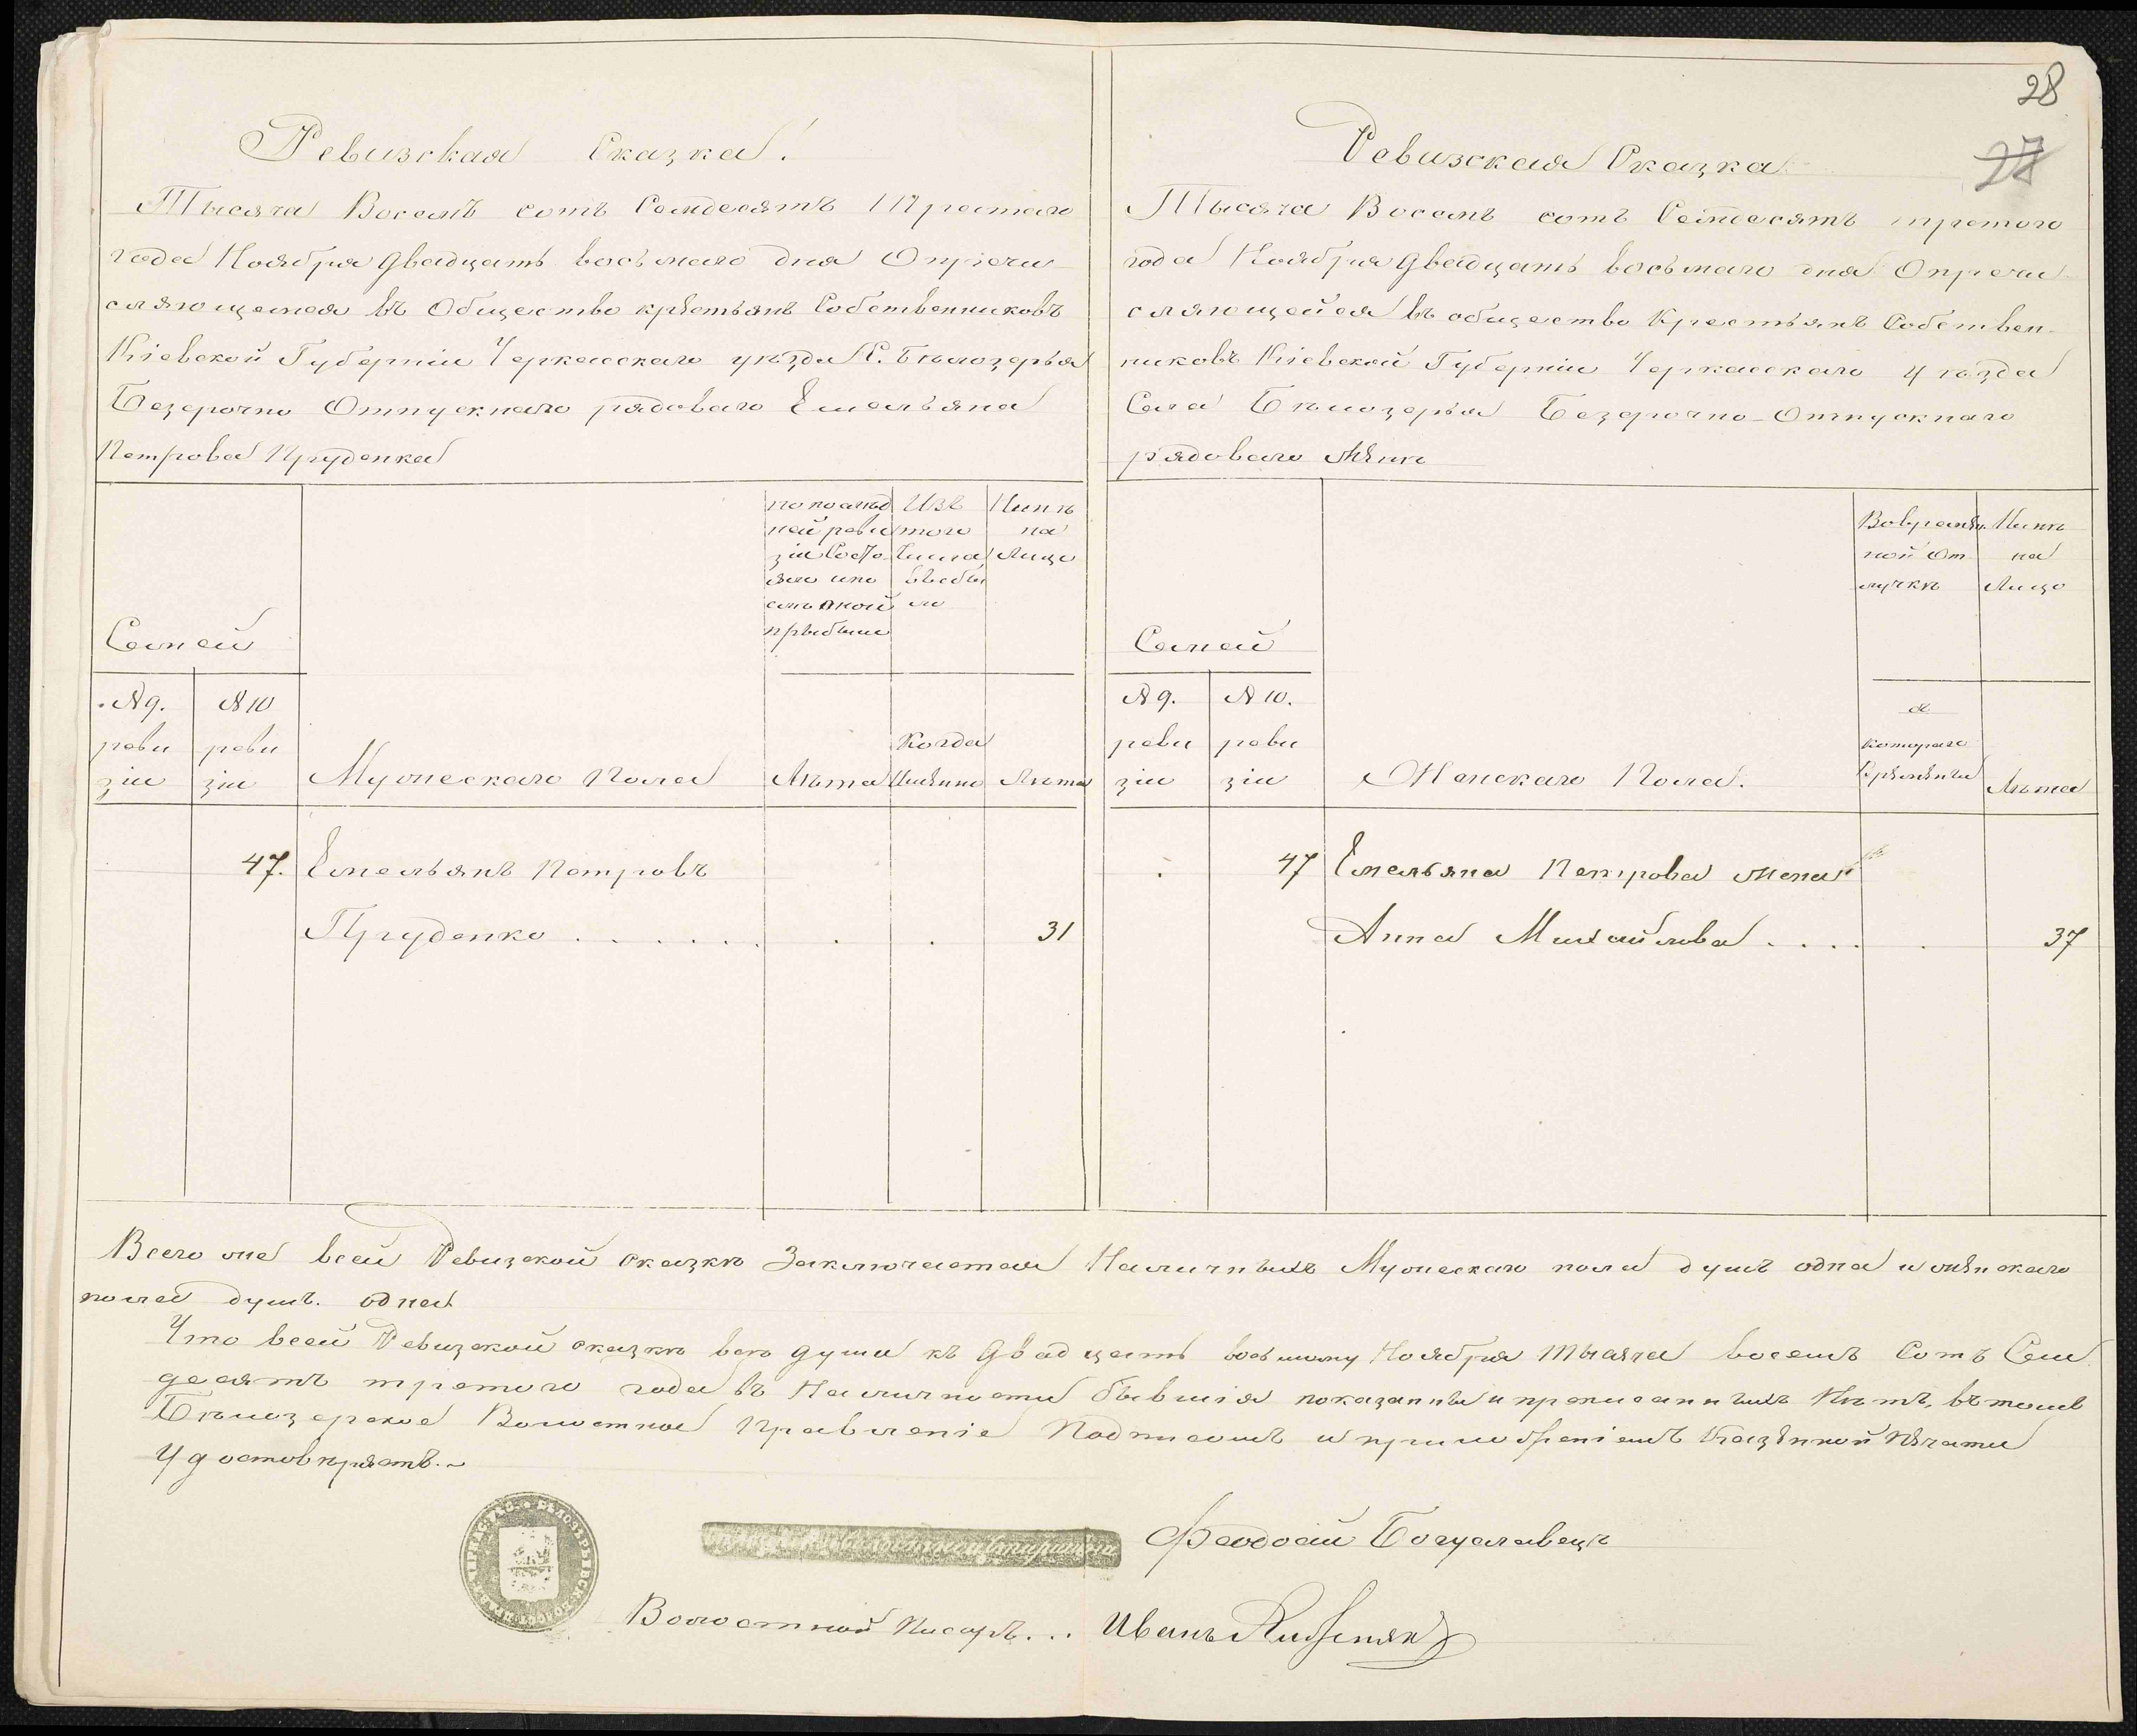 28
27
Ревизская Сказка.
Тысяча Восемъ сотъ Семдесятъ Третяго
года Ноября Двадцать восьмаго дня О причи
сляющемся въ Общество крѣстьянъ Собственниковъ
Кіевской Губерніи Черкасскаго уѣзда С. Бѣлозерья
Безсрочно Отпускнаго рядоваго Емельяна
Петрова Пруденка
Семей
№ 9. реви зіи
№ 10 реви зіи
Мужескаго Пола
по послѣд
ней реви
зіи Состо
яло и по
слѣ оной
прибыли
Лѣта
Изъ
того
Числа
выбы
ло
Когда
Имѣнно
Нынѣ
на
Лицо
Лѣта
47. Емельянъ Петровъ
Пруденко . . . . . . . . 31
Ревизская Сказка
Тысяча Восемъ сотъ Семдесятъ третого
года Ноября Двадцать восьмаго дня О причи
сляющейся въ общество Крестьянъ Собствен-
никовъ Кіевской Губерніи Черкасскаго уѣзда
Села Бѣлозерья Безсрочно-Отпускнаго
рядоваго жѣнѣ
Семей
№ 9. реви зіи
№ 10. реви зіи
Женскаго Пола.
Во врѣмѣн
ной От
лучкѣ
съ
котораго
Врѣмѣни
Нынѣ
на
Лицо
Лѣта
47 Емельяна Петрова жена
Анна Михайлова . . . . . 37
Всего же всей Ревизской сказкѣ Заключается Наличныхъ Мужескаго пола душъ одна и жѣнскаго
пола душъ. одна
Что всей Ревизской сказкѣ всѣ души къ Двадцать восьмому Ноября тысяча восемъ Сотъ Сем
десятъ третого года въ Наличности бывшія показанны и прописанныхъ Нѣтъ, въ томъ
Бѣлозерское Волостное Правленіе Подписомъ и приложеніемъ Казѣнной Пѣчати
Удостовѣряетъ.
Феодосій Богуславецъ
Волостной Писарь... Иванъ